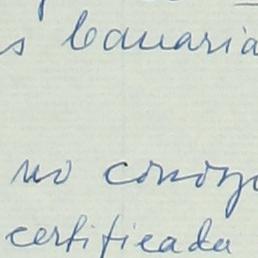 s banaria
no conozc
certificada